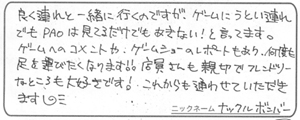 良く連れと一緒に行くのですが、ゲームにうとい連れ
でもPAOは見てるだけでもあきない!と言ってます。
ゲームへのコメントや、ゲームショーのレポートもあり、何度も
足を運びたくなります!!店員さんも親切でフレンドリー
なところも大好きです!これからも通わせていただき
ます
ニックネーム ナックルボンバー